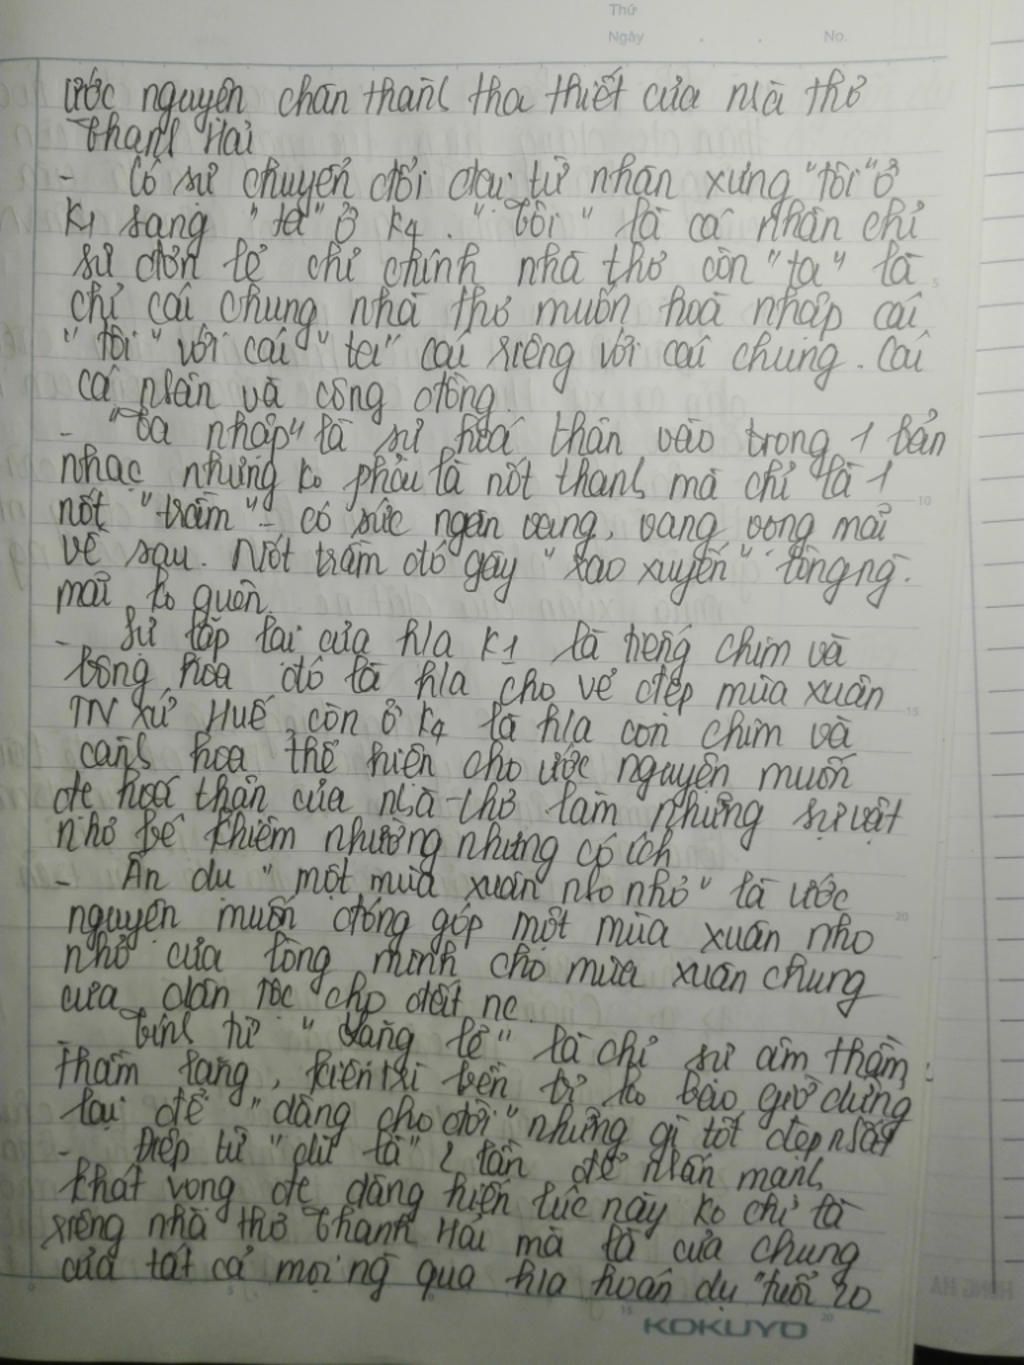 Thứ
Ngày . . No.
ước nguyện chân thành tha thiết của nhà thơ
Thanh Hải
- Có sự chuyển đổi đại từ nhân xưng "tôi" ở
K1 sang "ta" ở K4. "Tôi" là cá nhân chỉ
sự đơn lẻ chỉ chính nhà thơ còn "ta" là
chỉ cái chung nhà thơ muốn hoà nhập cái
"tôi" với cái "ta" cái riêng với cái chung. Cái
cá nhân và cộng đồng.
- "Ta nhập" là sự hoá thân vào trong 1 bản
nhạc nhưng ko phải là nốt thanh mà chỉ là 1
nốt "trầm" - có sức ngân vang, vang vọng mãi
về sau. Nốt trầm đó gây "xao xuyến" lòng ng.
mãi ko quên.
- Sự lặp lại của h/a K1 là tiếng chim và
bông hoa đó là h/a cho vẻ đẹp mùa xuân
TN xứ Huế, còn ở K4 là h/a con chim và
cành hoa thể hiện cho ước nguyện muốn
đc hoá thân của nhà thơ làm những sự vật
nhỏ bé khiêm nhường nhưng có ích
- Ẩn dụ "một mùa xuân nho nhỏ" là ước
nguyện muốn đóng góp một mùa xuân nho
nhỏ của lòng mình cho mùa xuân chung
của dân tộc cho đất nc.
Tính từ "lặng lẽ" là chỉ sự âm thầm,
thầm lặng, kiên trì bền bỉ ko bao giờ dừng
lại để "dâng cho đời" những gì tốt đẹp nhất
- Điệp từ "dù là" 2 lần để nhấn mạnh
khát vọng đc dâng hiến lúc này ko chỉ là
riêng nhà thơ Thanh Hải mà là của chung
của tất cả mọi ng qua h/a hoán dụ "tuổi 20
KOKUYO